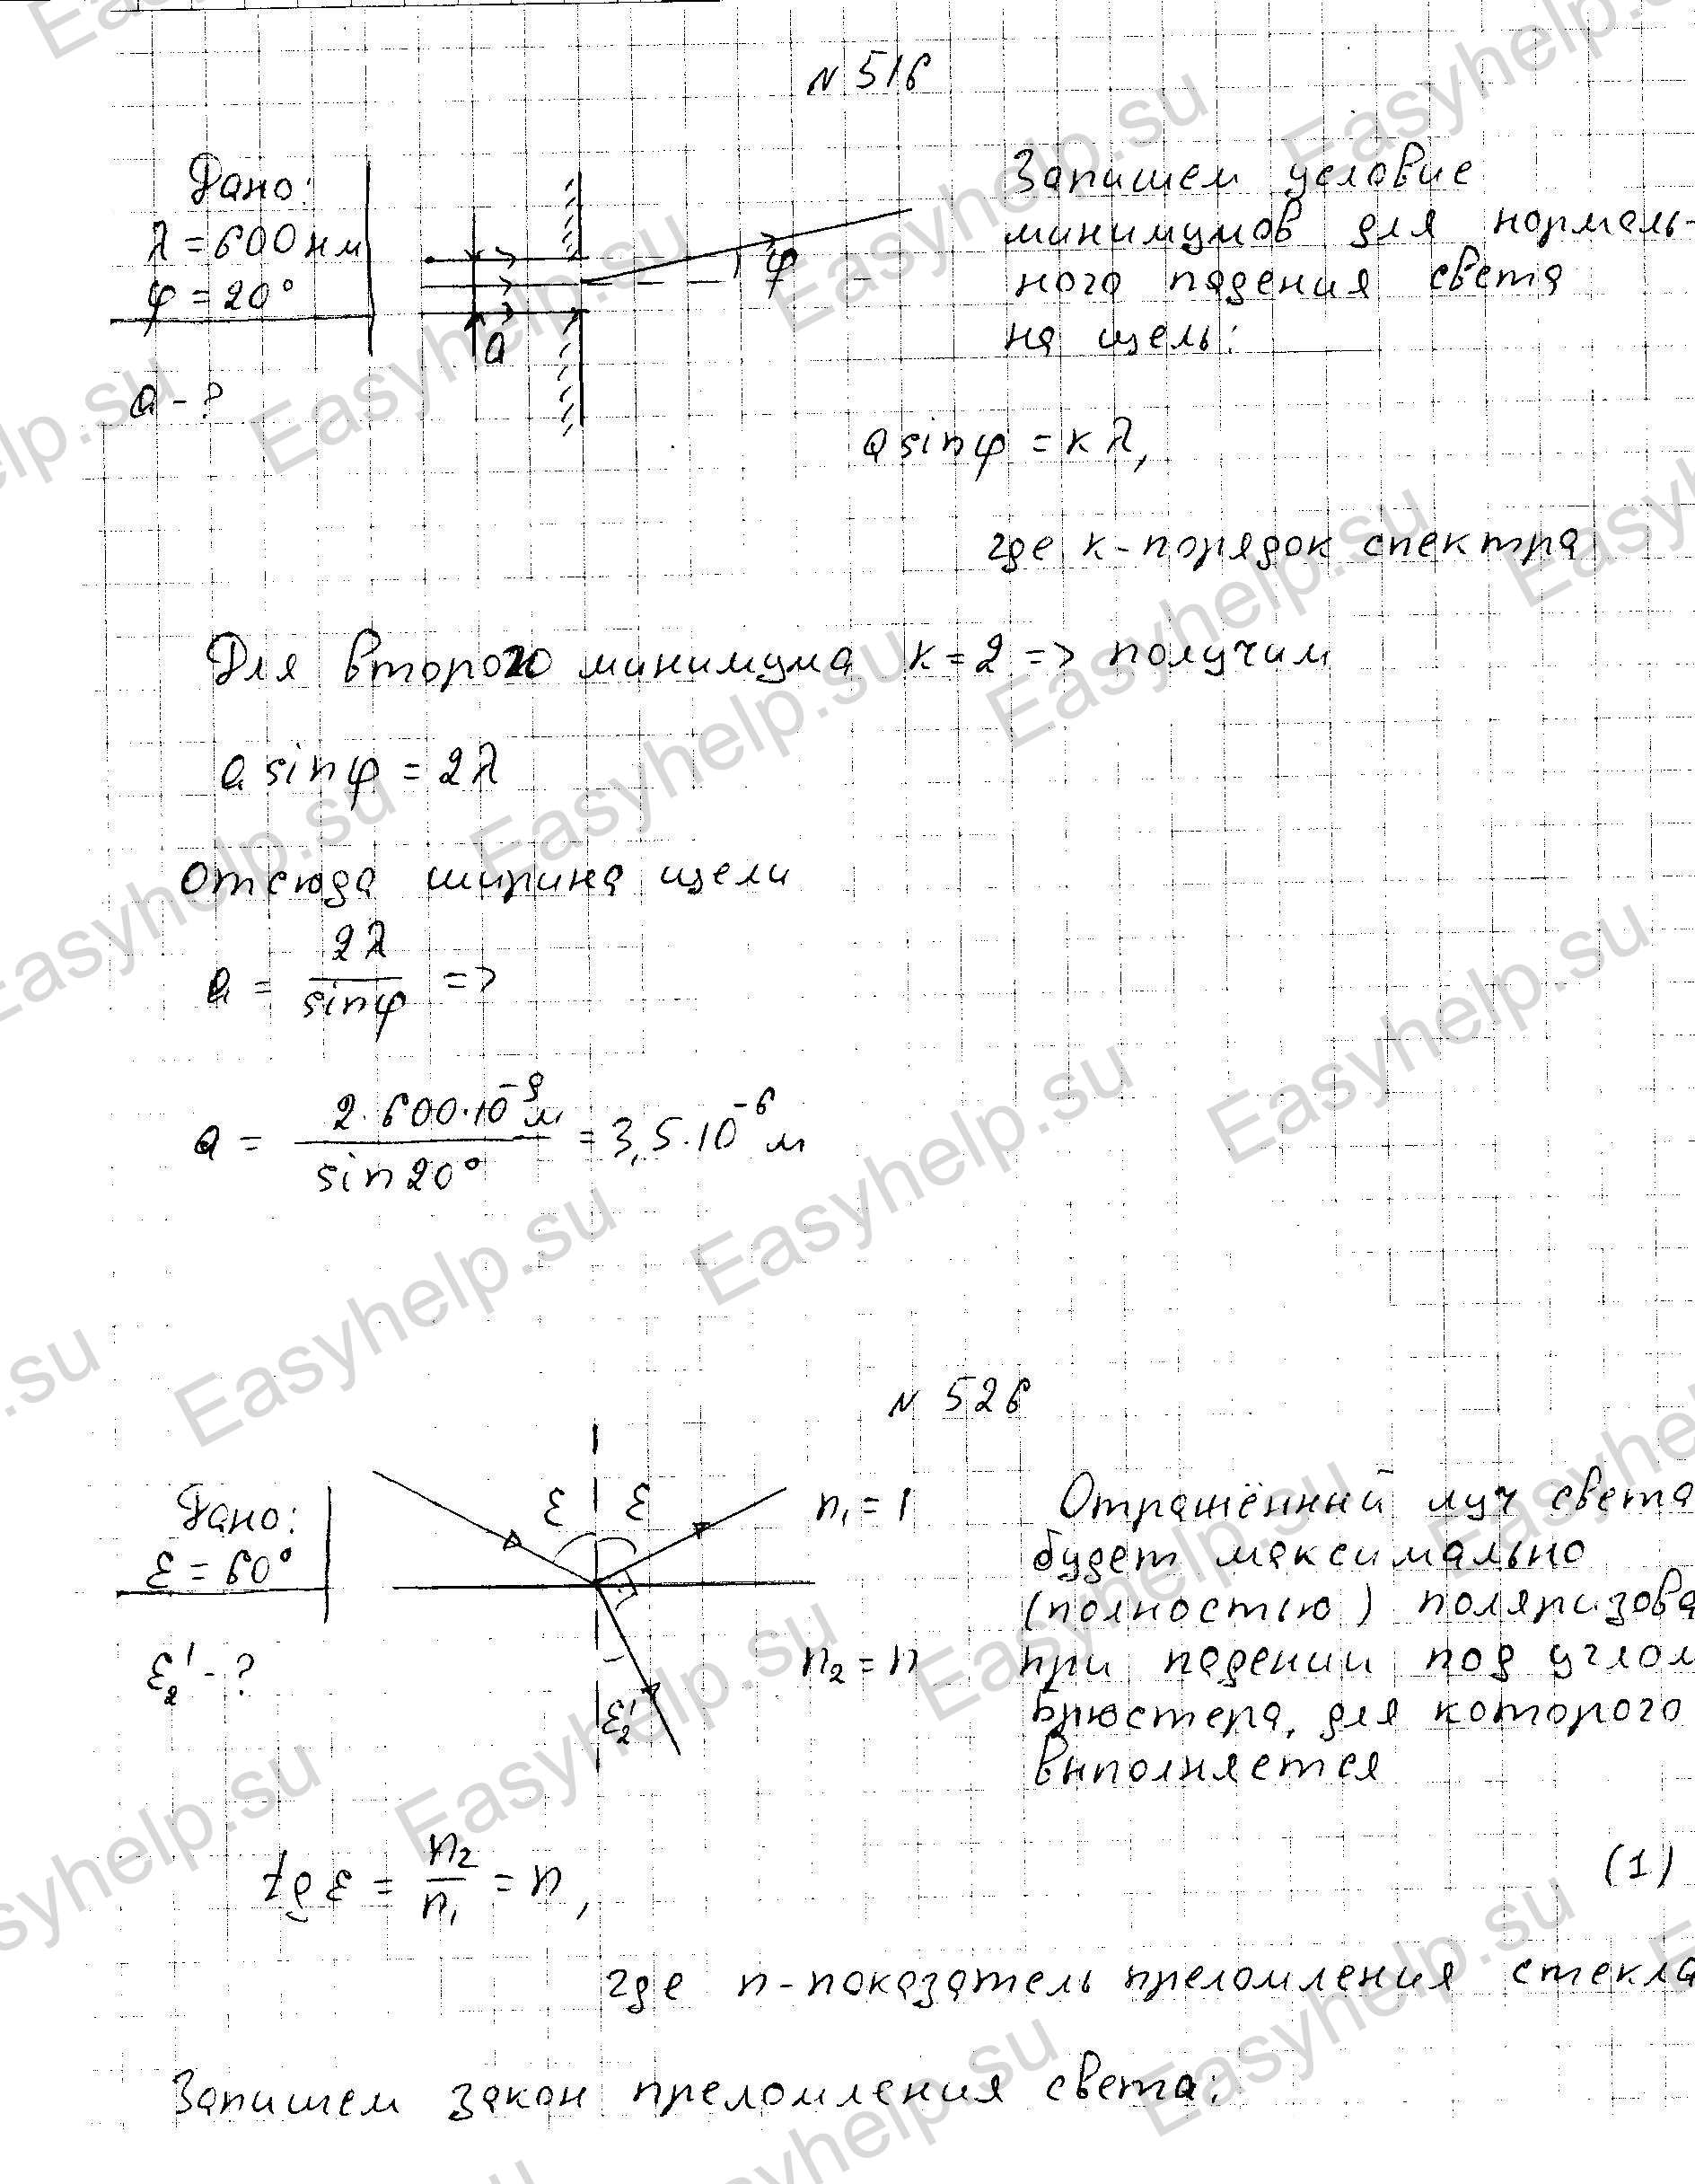 N 516
Дано:
λ = 600 нм
φ = 20°
a - ?
a
φ
Запишем условие
минимумов для нормаль-
ного падения света
на щель:
a sinφ = kλ,
где k - порядок спектра
Для второго минимума k = 2 => получим
a sinφ = 2λ
Отсюда ширина щели
a = 2λ / sinφ =>
a = 2·600·10⁻⁹ м / sin20° = 3,5·10⁻⁶ м
N 526
Дано:
ε = 60°
ε₂' - ?
ε ε
n₁ = 1
n₂ = n
ε₂'
Отражённый луч света
будет максимально
(полностью) поляризова
при падении под углом
Брюстера, для которого
выполняется
tg ε = n₂ / n₁ = n, (1)
где n - показатель преломления стекла
Запишем закон преломления света:
Easyhelp.su